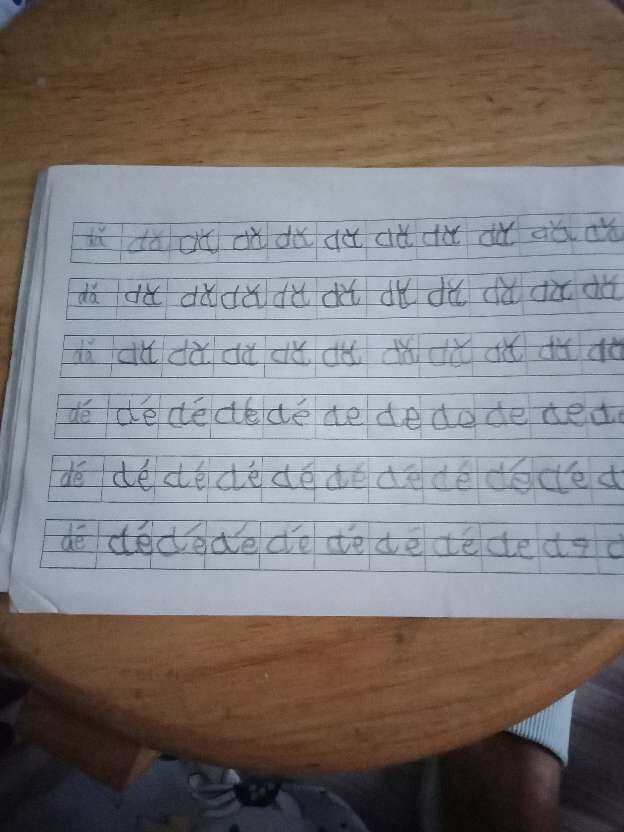 dǎ dǎ dǎ dǎ dǎ dǎ dǎ dǎ dǎ dǎ dǎ
dǎ dǎ dǎ dǎ dǎ dǎ dǎ dǎ dǎ dǎ dǎ
dǎ dǎ dǎ dǎ dǎ dǎ dǎ dǎ dǎ dǎ dǎ
dé dé dé dé dé de de de de de d
dé dé dé dé dé dé dé dé dé dé d
dé dé dé dé dé dé dé dé de de d